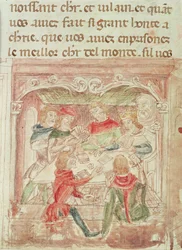 noissant chr. et uilain. et quāt
uos auez fait si grant honte a
chne. que uos auez enprisoner
le meillor chr del monte. sil uos